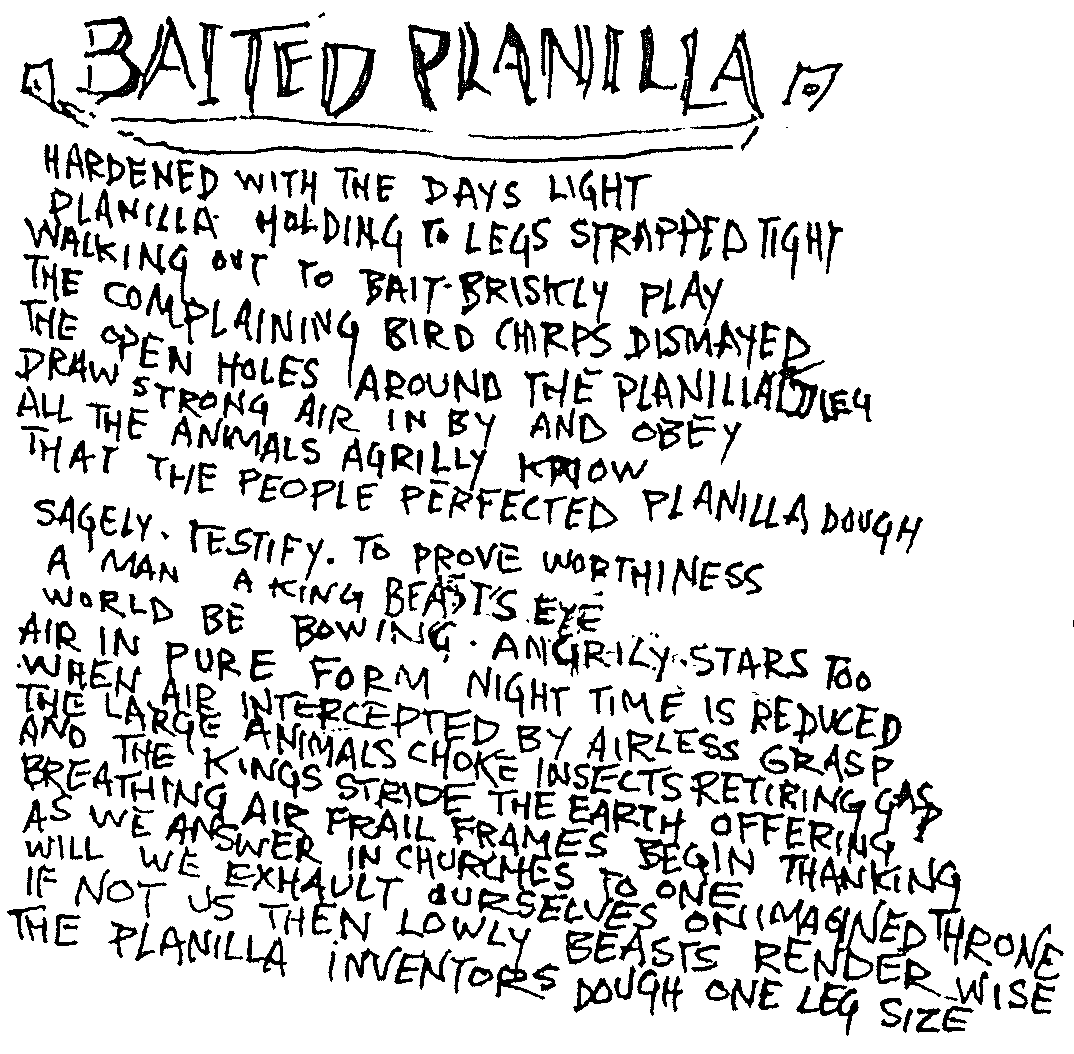 BAITED PLANILLA
HARDENED WITH THE DAYS LIGHT
PLANILLA HOLDING TO LEGS STRAPPED TIGHT
WALKING OUT TO BAIT-BRISKLY PLAY
THE COMPLAINING BIRD CHIRPS DISMAYED
THE OPEN HOLES AROUND THE PLANILLA LEG
DRAW STRONG AIR IN BY AND OBEY
ALL THE ANIMALS AGRILLY KNOW
THAT THE PEOPLE PERFECTED PLANILLA DOUGH
SAGELY. TESTIFY. TO PROVE WORTHINESS
A MAN A KING BEAST'S EYE
WORLD BE BOWING. ANGRILY. STARS TOO
AIR IN PURE FORM NIGHT TIME IS REDUCED
WHEN AIR INTERCEPTED BY AIRLESS GRASP
THE LARGE ANIMALS CHOKE INSECTS RETIRING GASP
AND THE KINGS STRIDE THE EARTH OFFERING
BREATHING AIR FRAIL FRAMES BEGIN THANKING
AS WE ANSWER IN CHURCHES TO ONE
WILL WE EXHAULT OURSELVES ON IMAGINED THRONE
IF NOT US THEN LOWLY BEASTS RENDER WISE
THE PLANILLA INVENTORS DOUGH ONE LEG SIZE